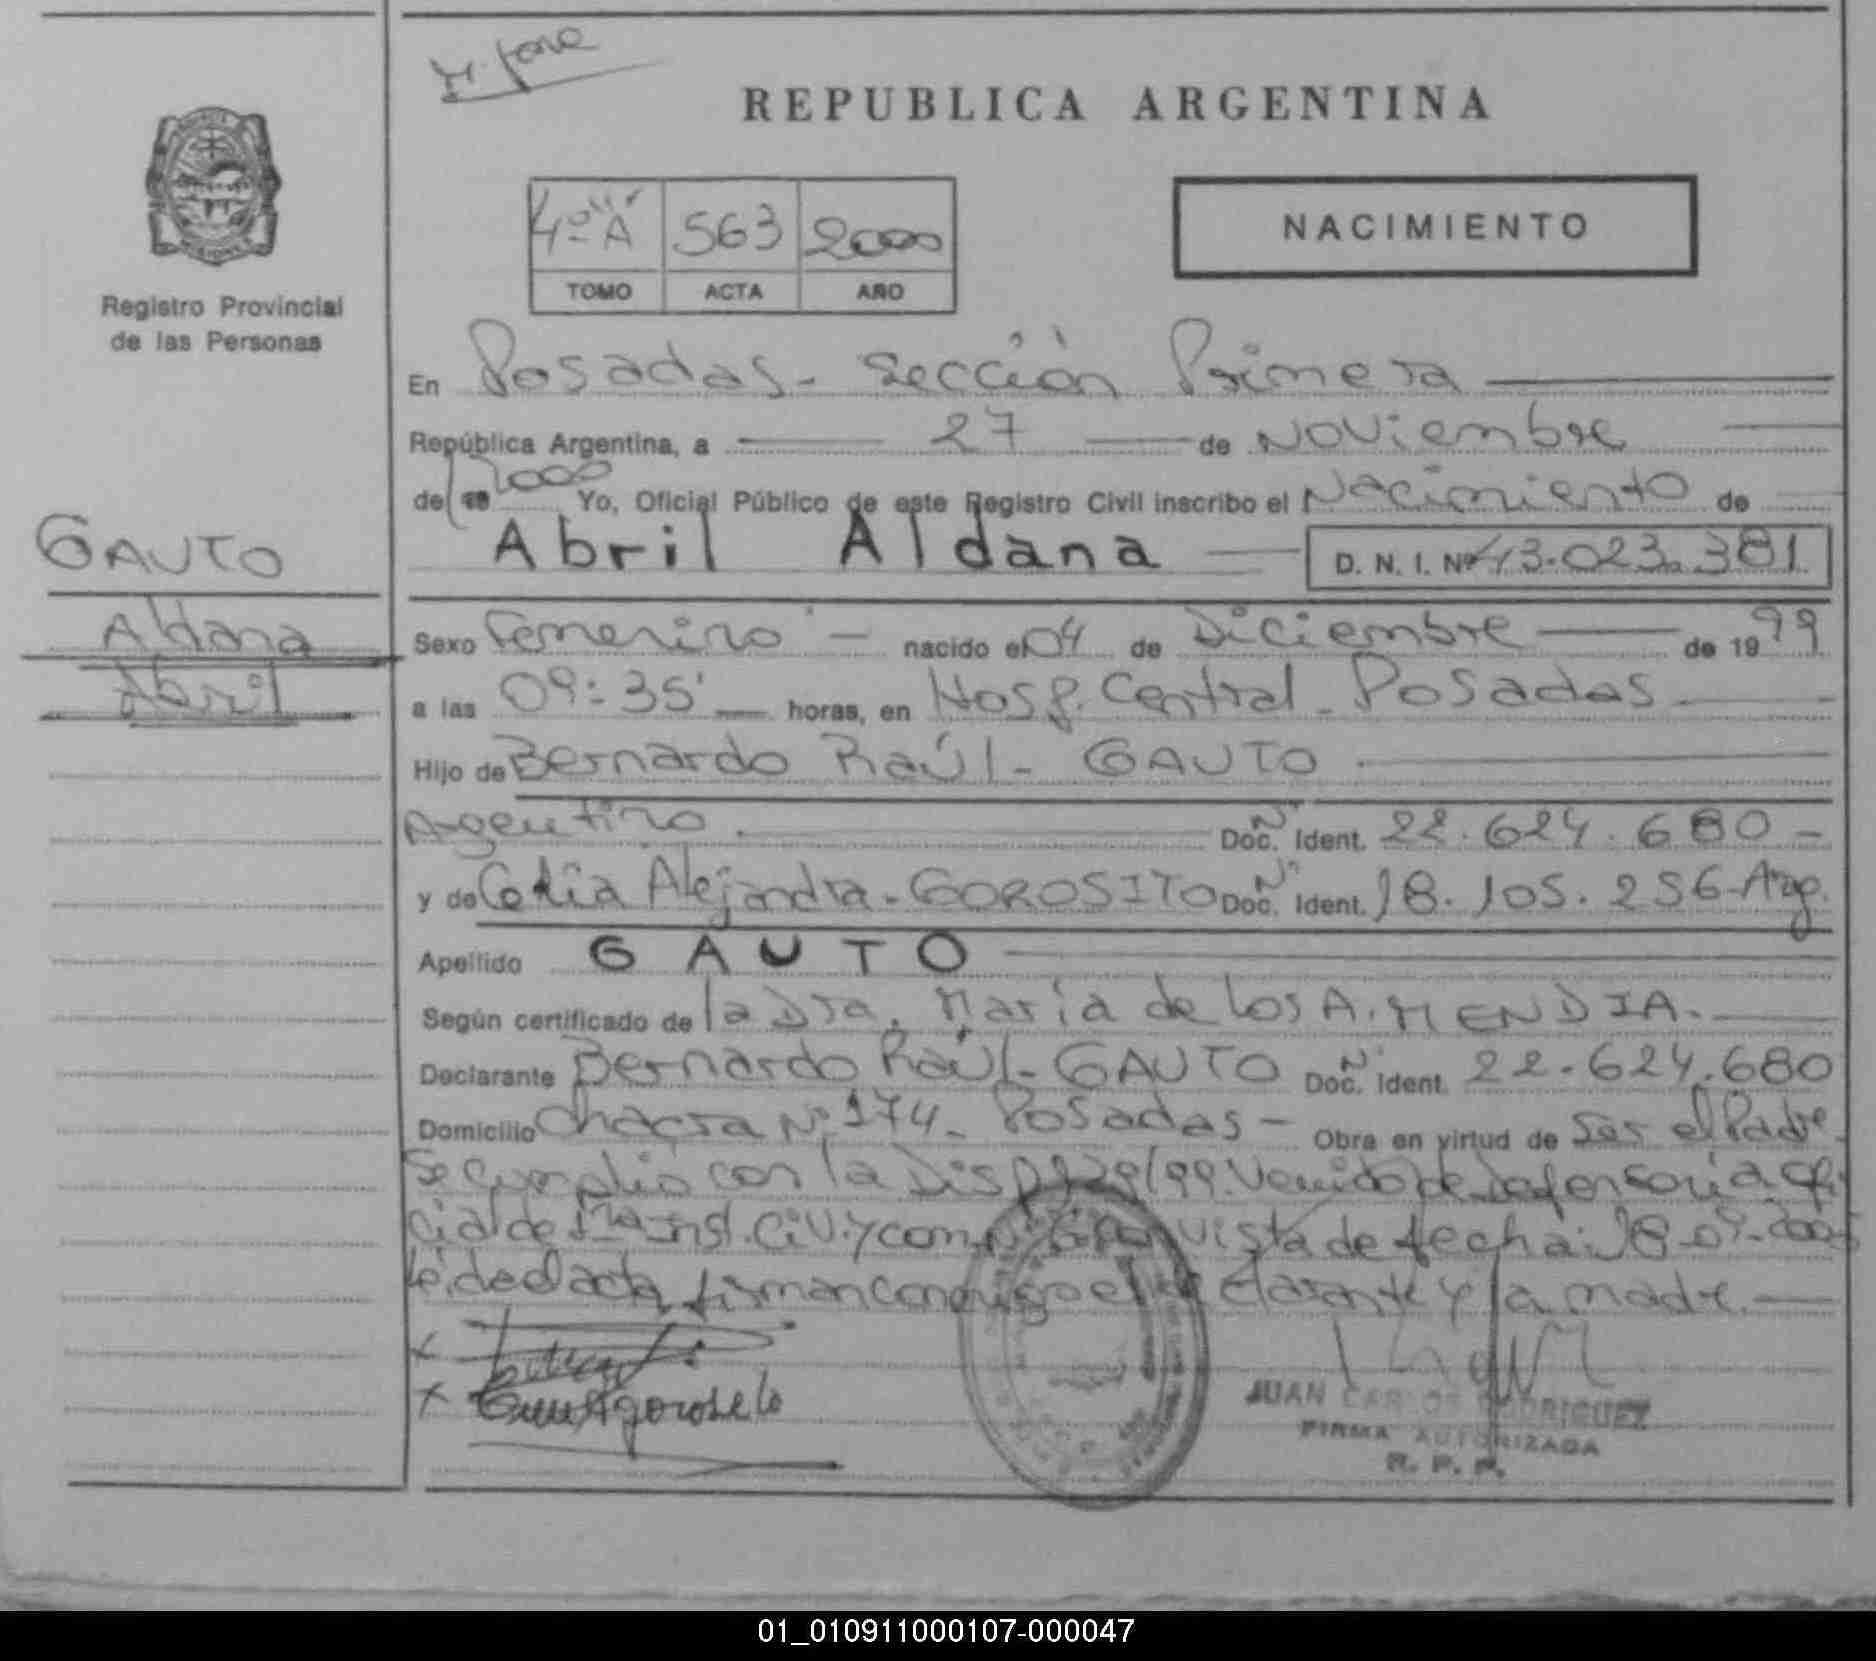 REPUBLICA ARGENTINA
Registro Provincial
de las Personas
4º "A" 563 2000
TOMO ACTA AÑO
NACIMIENTO
En Posadas - Sección Primera
República Argentina, a 27 de Noviembre
de 2000 Yo, Oficial Público de este Registro Civil inscribo el Nacimiento de
Abril Aldana D. N. I. Nº 43.023.381
GAUTO
Aldana
Abril
Sexo Femenino - nacido el 04 de Diciembre de 1999
a las 09:35' horas, en Hosp. Central - Posadas
Hijo de Bernardo Raúl - GAUTO
Argentino Doc. Nº Ident. 22.624.680 -
y de Celia Alejandra - GOROSITO Doc. Nº Ident. 18.105.256 - Arg.
Apellido GAUTO
Según certificado de la Dra. María de los A. MENDIA.
Declarante Bernardo Raúl - GAUTO Doc. Nº Ident. 22.624.680
Domicilio Chacra Nº 174 - Posadas - Obra en virtud de ser el Padre.
Se cumplio con la Disp. /99. de Defensoria Ofi
cial de 1ra Inst. Civ. y Com. vista de fecha:
leida el acta, firman conmigo el declarante y la madre.
JUAN CARLOS RODRIGUEZ
FIRMA AUTORIZADA
R. P. P.
01_010911000107-000047